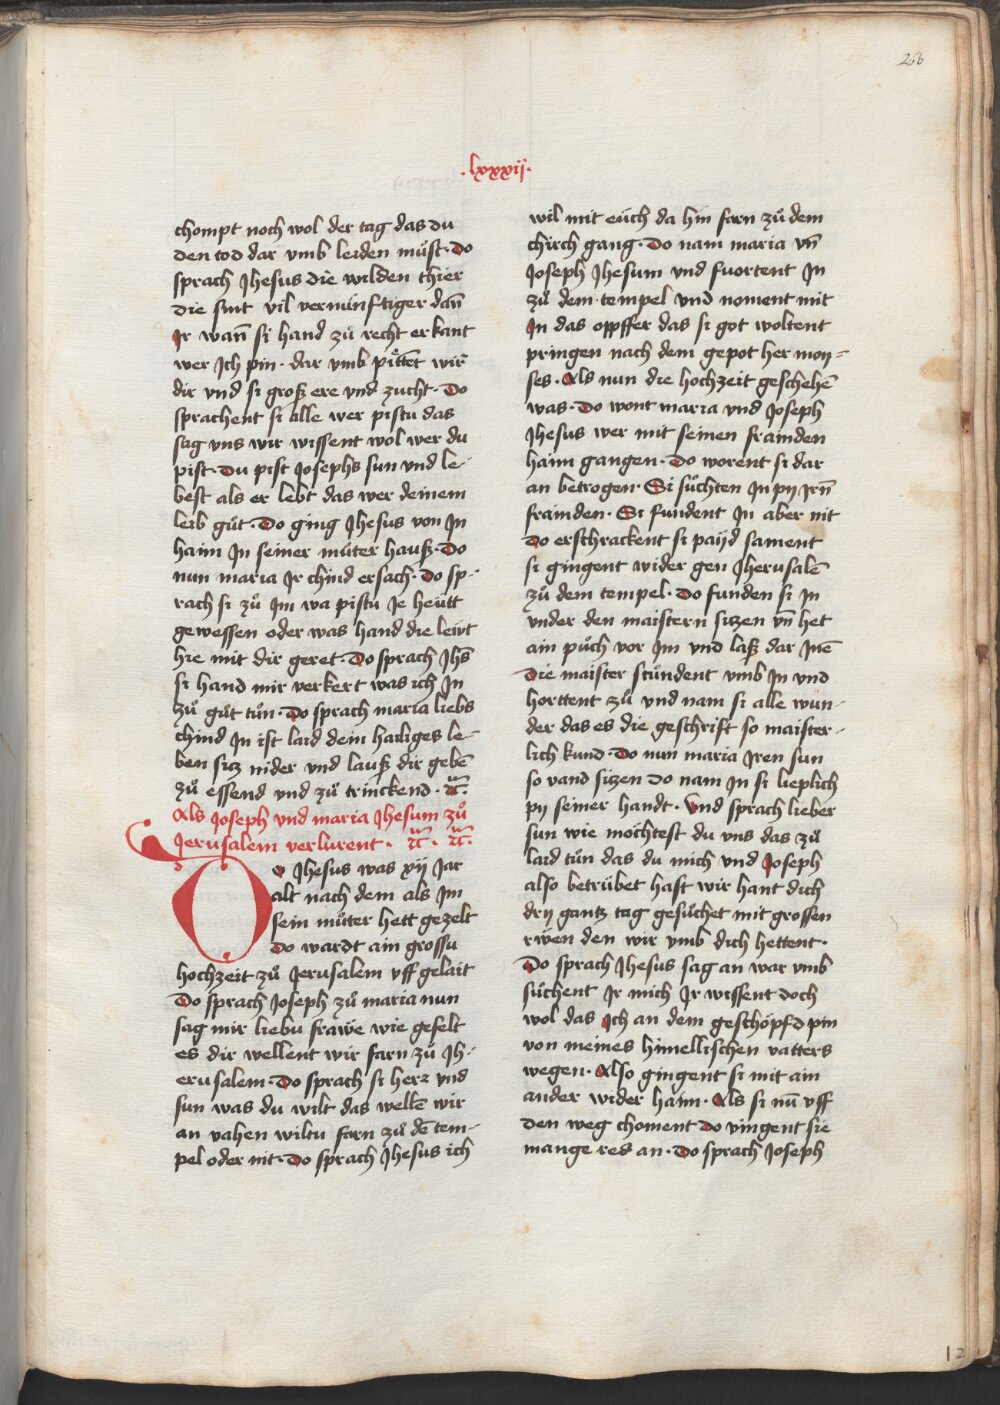 ·lxxxij·
chompt noch wol der tag das du
den tod dar vmb leiden muͦst· Do
sprach Jhesus die wilden thier
die sint vil vernunftiger dan̄
Jr wan̄ si hand zuͦ recht erkant
wer Jch pin· dar vmb pittet wir
dir vnd si groß ere vnd zucht· Do
sprachent si alle wer pistu das
sag vns wir wissent wol wer du
pist· Du pist Josephs sun vnd le-
best als er lebt das wer deinem
leib guͦt· Do ging Jhesus von Jn
haim Jn seiner muͦter hauß· Do
nun maria Jr chind ersach· Do sp-
rach si zuͦ Jm wa pistu Je heutt
gewessen oder was hand die leut
hie mit dir geret· Do sprach Jhs̄
si hand mir verkert was ich Jn
zuͦ guͦt tuͦn· Do sprach maria liebs
chind Jn ist laid dein hailiges le-
ben sicz nider vnd lauß dir gebē
zuͦ essend vnd zuͦ trinckend·
Als Joseph vnd maria Jhesum zuͦ
Jerusalem verlurent·
Do Jhesus was xij Jar
alt nach dem als Jm
sein muͦter hett gezelt
Do wardt ain grossu
hochzeit zuͦ Jerusalem vff gelait
Do sprach Joseph zuͦ maria nun
sag mir liebu frawe wie gefelt
es dir wellent wir farn zuͦ Jh-
erusalem· Do sprach si herr vnd
sun was du wilt das wellē wir
an vahen wiltu farn zuͦ dē tem-
pel oder nit· Do sprach Jhesus ich
wil mit euch da hin farn zuͦ dem
chirch gang· Do nam maria vn̄
Joseph Jhesum vnd fuortent Jn
zuͦ dem tempel vnd noment mit
Jn das oppffer das si got woltent
pringen nach dem gepot her moy-
ses· Als nun die hochzeit geschehē
was· Do wont maria vnd Joseph
Jhesus wer mit seinen frainden
haim gangen· Do worent si dar
an betrogen· Si suͦchten Jn pij Jrn̄
frainden· Si fundent Jn aber nit
Do erschrackent si paijd sament
si gingent wider gen Jherusalē
zuͦ dem tempel· Do funden si Jn
vnder den maistern siczen vn̄ het
ain puͦch vor Jm vnd laß dar Jnē
Die maister stuͦndent vmb Jn vnd
horttent zuͦ vnd nam si alle wun-
der das es die geschrift so maister-
lich kund· Do nun maria Jren sun
so vand siczen do nam Jn si lieplich
pij seiner handt· Vnd sprach lieber
sun wie möchtest du vns das zuͦ
laid tuͦn das du mich vnd Joseph
also betrübet hast wir hant dich
drij gantz tag gesuͦchet mit grossen
rwen den wir vmb dich hettent·
Do sprach Jhesus sag an war vmb
suͦchent Jr mich Jr wissent doch
wol das Jch an dem geschöpfd pin
von meines himellischen vatters
wegen· Also gingent si mit ain
ander wider haim· Als si nū vff
den weg choment Do vingent sie
mange red an· Do sprach Joseph